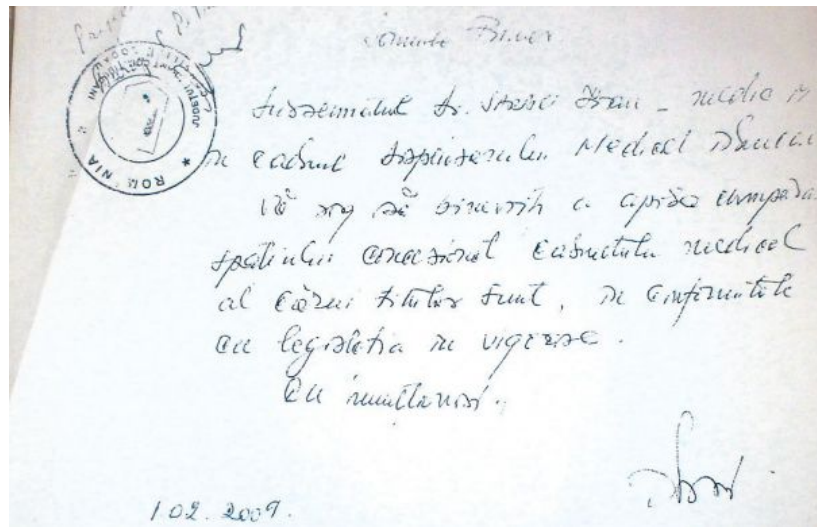 Domnule Primar
Subsemnatul Dr. - medic
în cadrul dispensarului Medical
Vă rog să binevoiți a aproba cumpăra
spațiului concesionat cabinetului medical
al cărui titular sunt, în conformitate
cu legislația în vigoare.
Cu mulțumiri.
1.02.2009.
ROMÂNIA